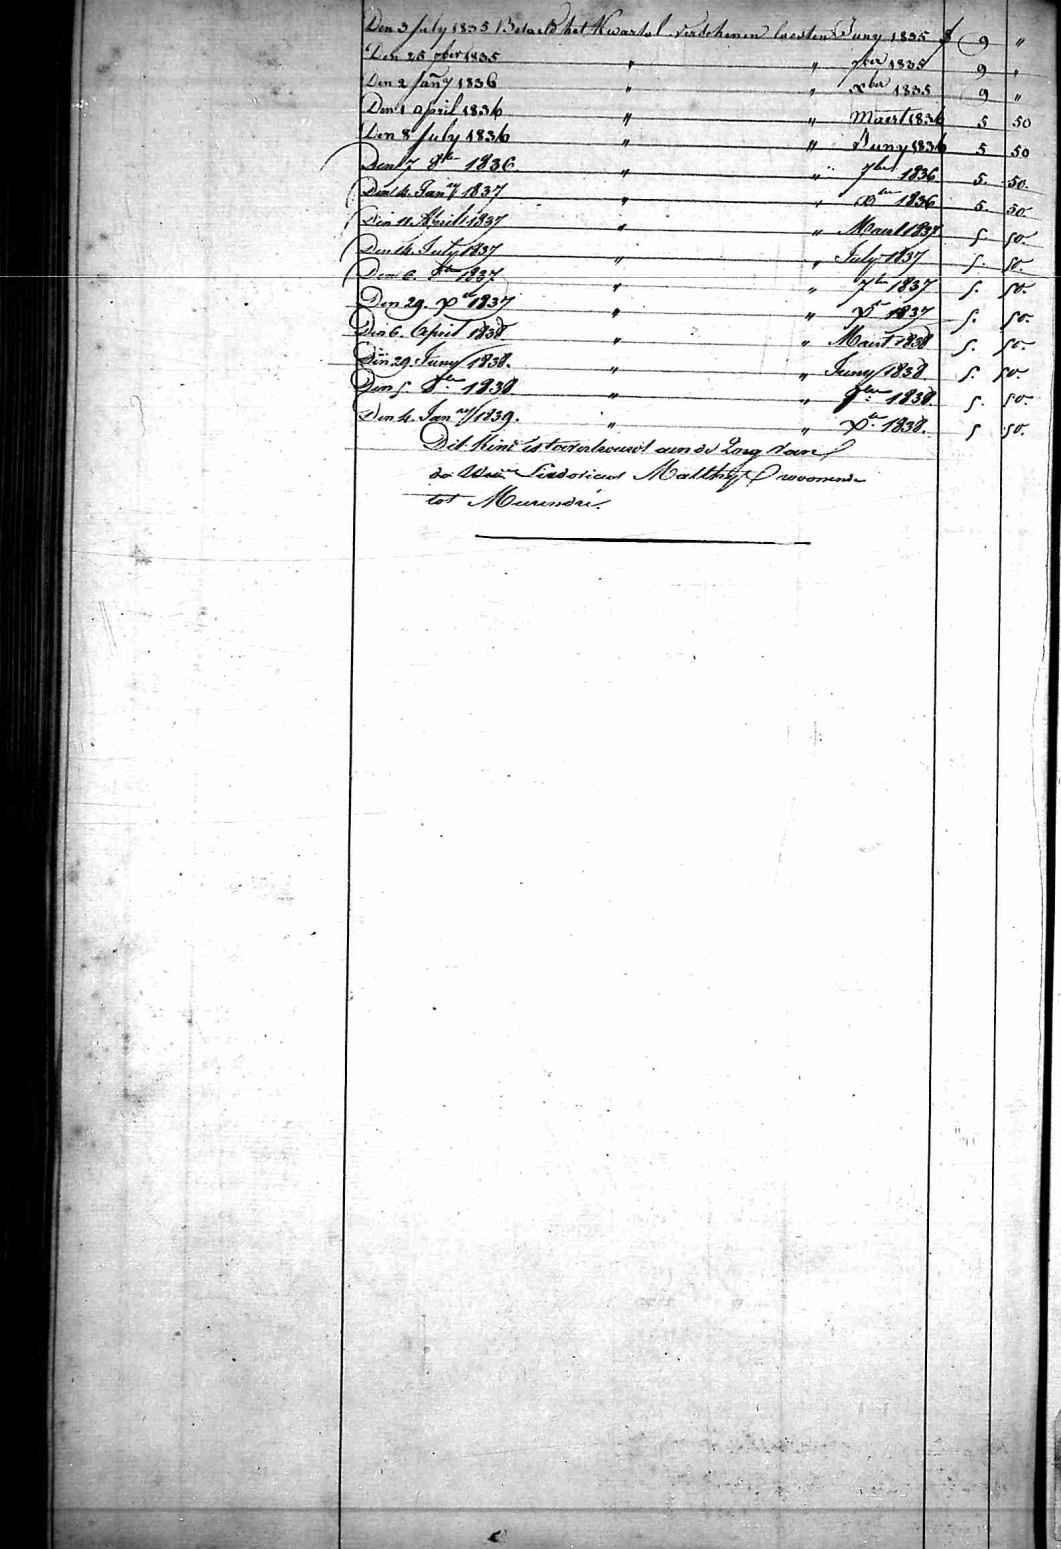 Den 3 July 1835 Betaeld het Kwartal verschenen laesten Juny 1835 f 9 "
Den 25 7ber 1835 " " 7ber 1835 9 "
Den 2 Jany 1836 " " xber 1835 9 "
Den 1 april 1836 " " Maert 1836 5 50
Den 8 July 1836 " " Juny 1836 5 50
Den 7 8bre 1836. " " 7bre 1836 5. 50.
Den 4. Jany 1837 " " Xbre 1836 5. 50.
Den 11 April 1837 " " Maert 1837 5 50.
Den 14. July 1837 " " July 1837 5. 50.
Den 6. 8bre 1837 " " 7bre 1837 5. 50.
Den 29. Xbre 1837 " " Xbre 1837 5. 50.
Den 6. April 1838 " " Maert 1838 5. 50.
Den 29. Juny 1838. " " Juny 1838 5. 50.
Den 5. 8bre 1838 " " 7bre 1838. 5. 50.
Den 4. Jany 1839. " " Xbre 1838. 5 50.
Dit Kind is toevertrouwt aen de Zorg van
de Matthys woonende
tot Meirendré.